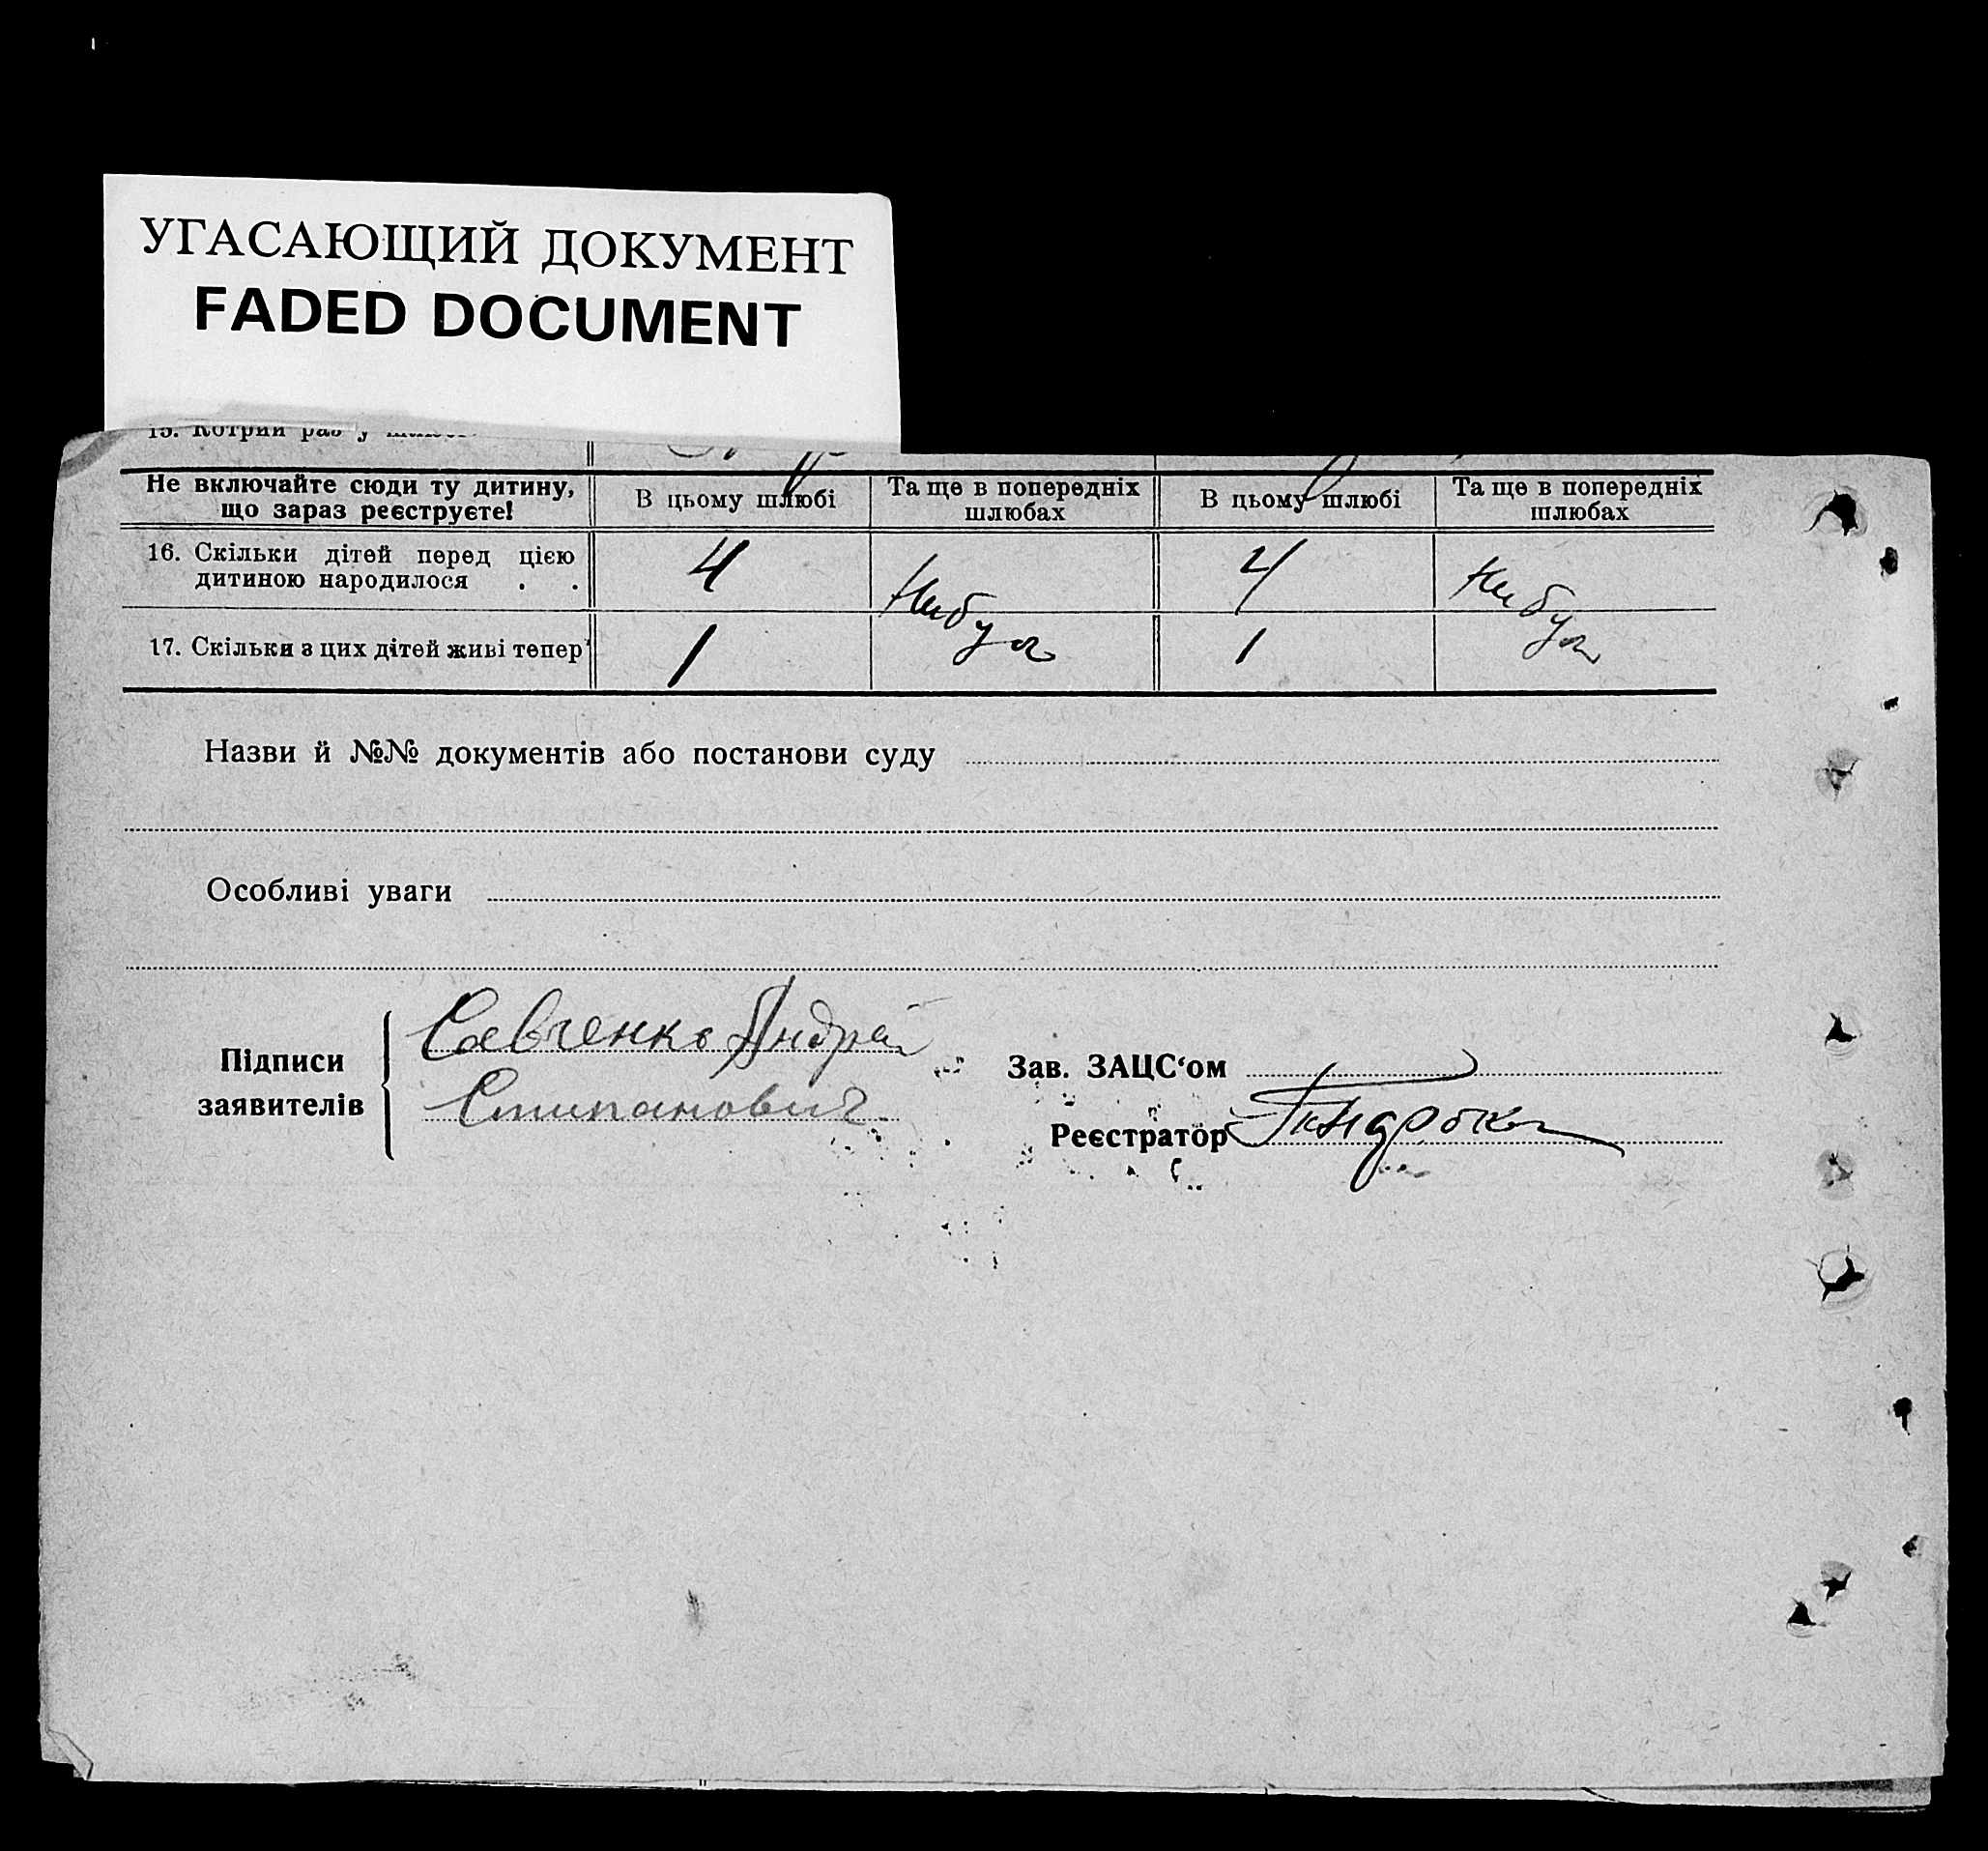 УГАСАЮЩИЙ ДОКУМЕНТ
FADED DOCUMENT
15. Котрий раз у
Не включайте сюди ту дитину, що зараз реєструєте!
В цьому шлюбі
Та ще в попередніх шлюбах
В цьому шлюбі
Та ще в попередніх шлюбах
16. Скільки дітей перед цією
дитиною народилося . .
4
4
17. Скільки з цих дітей живі тепер
1
1
Назви й №№ документів або постанови суду
Особливі уваги
Підписи
заявителів
Савченко Андрей
Стипанович
Зав. ЗАЦС‘ом
Реєстратор